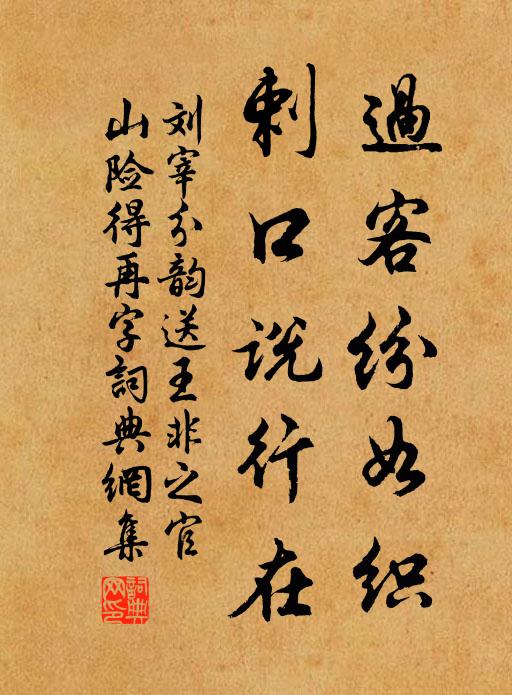 過客紛如织
刺口説行在
刘宰分韵送王非之官
山险得再字詞典網集
詞典网印